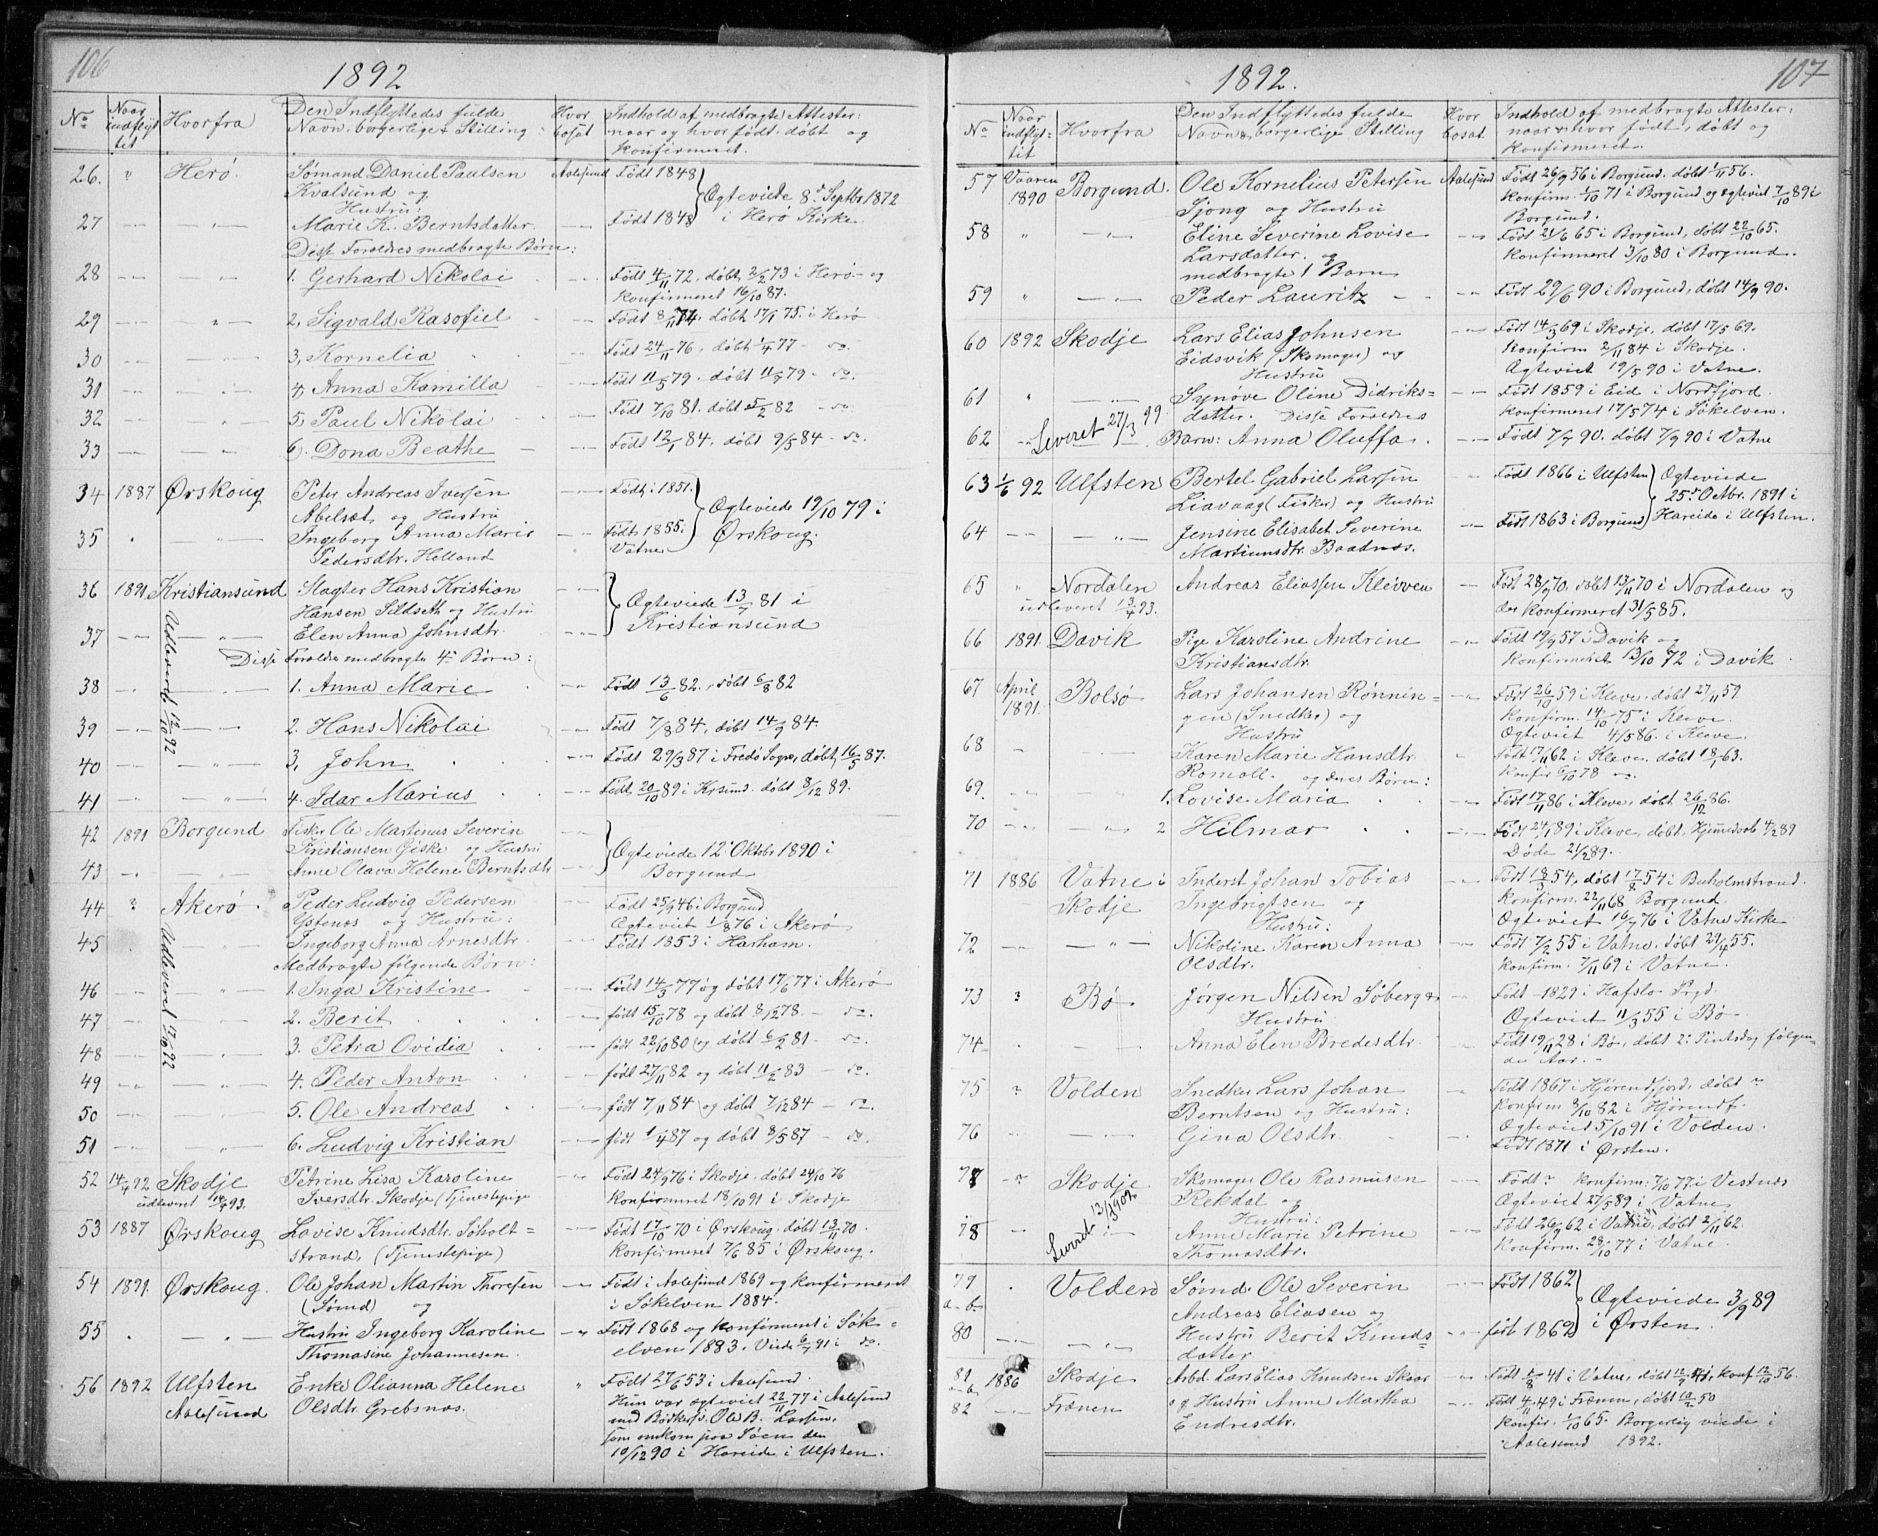 106
1892
No
Naar indflyttet
Hvorfra
Den Indflyttedes fulde Navn, borgerlige Stilling:
Hvor bosat
Indhold af medbragte Attester: naar og hvor født, døbt og konfirmeret.
26. " Herø Sømand Daniel Paulsen Aalesund Født 1848
Kvalsund og Ogteviede 8de Septbr. 1872
Hustru: i Herø Kirke
27 Marie K. Berntsdatter. Født 1848
Disse Foreldres medbragte Børn:
28 1. Gerhard Nikolai Født 4/11 72, døbt 2/2 73 i Herø og
konfirmeret 16/10 87.
29 2, Sigvald Rasofiel Født 8/11 74, døbt 17/1 75. i Herø
30 3, Kornelia Født 24/11 76, døbt 1/4 77 - do.
31 4, Anna Kamilla Født 11/5 79, døbt 11/5 79 - do.
32 5, Paul Nikolai Født 7/10 81, døbt 5/2 82 - do.
33 6, Dona Beathe Født 12/1 84. døbt 9/5 84 - do.
34 1887 Ørskoug Peter Andreas Iversen Født i 1851.
Abelsæt og Hustru Ogteviede 19/10 79 i
35 Ingeborg Anna Marie Født 1855. Ørskoug.
Pedersdtr. Helland Vatne
36 1891 Kristiansund Slagter Hans Kristian
Hansen Sildseth og Hustru Ogteviede 13/7 81 i
37 Elen Anna Johnsdtr. Kristiansund
Disse Foreldre medbragte 4 Børn:
Udleveret 12/10 92
38 1. Anna Marie Født 13/6 82, døbt 6/8 82
39 2. Hans Nikolai Født 7/8 84, døbt 14/9 84.
40 3, John Født 29/3 87 i Fredø Sogn, døbt 16/5 87.
41 4. Idar Marius Født 20/10 89 i Krsund. døbt 8/12 89.
42 1891 Borgund Fisker Ole Martinus Severin
Kristiansen Giske og Hustru Ogteviede 12 Oktbr 1890 i
43 Anne Olava Helene Berntsdtr Borgund
44 ? Akerø Peder Ludvig Pedersen Født 25/9 46 i Borgund
Ystenæs og Hustru: Ogteviet 1/8 76 i Akerø
45 Ingeborg Anna Arnesdtr. Født 1853 i Harham.
Medbragte følgende Børn:
Udleveret 17/10 92
46 1. Inga Kristine Født 14/3 77 og døbt 17/6 77 i Akerø
47 2. Berit født 15/10 78 og døbt 8/12 78. - do.
48 3. Petra Ovidia født 22/10 80 og døbt 6/2 81 - do.
49 4. Peder Anton født 27/11 82 og døbt 11/2 83 - do.
50 5. Ole Andreas født 7/11 84 og døbt 7/12 84 - do.
51 6. Ludvig Kristian født 1/4 87 og døbt 8/5 87 - do.
52 14/4 92 Skodje Petrine Lisa Karoline Født 24/9 76 i Skodje. døbt 24/10 76
udleveret 14/4 93. Iversdtr. Skodje (Tjenestepige Konfirmeret 18/10 91 i Skodje
53 1887 Ørskoug Lovise Knudsdtr. Søholt= Født 17/10 70 i Ørskoug. døbt 13/11 70.
strand, (Tjenestepige) konfirmeret 7/6 85 i Ørskoug.
54 1891. Ørskoug. Ole Johan Martin Thoresen Født i Aalesund 1869 og konfirmeret
(Sømd) og i Søkelven 1884.
55 Hustru Ingeborg Karoline Født 1868 og konfirmert i Søk-
Thomasine Johannesen. elven 1883. Viede 6/4 91 i do.
56 1892 Ulfsten Enke Olianna Helene Født 27/6 53 i Aalesund.
Aalesund Olsdtr. Grebsnæs. Hun var ogteviet 22/11 77 i Aalesund
med Ole B. Larsen,
som omkom paa Søen den
10/12 90 i Hareide i Ulfsten.
107
1892.
No
Naar indflyttet
Hvorfra
Den Indflyttedes fulde Navn & borgerlige Stilling
Hvor bosat
Indhold af medbragte Attester: naar & hvor født, døbt og konfirmeret.
57 Vaaren 1890 Borgund. Ole Kornelius Petersen Aalesund Født 26/9 56 i Borgund. døbt 1/11 56.
Sjong og Hustru konfirm. 1/10 71 i Borgund og ogteviet 7/10 89 i
Borgund.
58 Eline Severine Lovise Født 21/6 65 i Borgund, døbt 22/10 65.
Larsdatter. og konfirmeret 3/10 80 i Borgund.
medbragte 1 Barn
59 Peder Lauritz Født 29/6 90 i Borgund, døbt 14/9 90.
60 1892 Skodje Lars Elias Johnsen Født 14/3 69 i Skodje, døbt 17/5 69.
Eidsvik (Skomager) og Konfirm 2/11 84 i Skodje.
Hustru Ogteviet 19/5 90 i Vatne.
61 Synøve Oline Didriks- Født 1859 i Eid i Nordfjord.
datter. Disse Foreldres konfirmeret 17/5 74 i Søkelven.
62 Leveret 27/3 99 Barn: Anna Oluffa. Født 7/7 90. døbt 7/9 90 i Vatne
63 1/6 92 Ulfsten Bertel Gabriel Larsen Født 1866 i Ulfsten Ogteviede
Liavaag (Fisker) og Hustru 25de Octbr. 1891 i
64 Jensine Elisabet Severine Født 1863 i Borgund Hareide i Ulfsten.
Martinusdtr. Baadnæs.
65 Nordalen Andreas Eliassen Kleiven Født 28/9 70, døbt 13/11 70 i Nordalen og
udleveret 13/4 93. der konfirmeret 31/5 85.
66 1891. Davik Pige Karoline Andrine Født 19/9 57 i Davik og
Kristiansdtr. konfirmeret 13/10 72 i Davik
67 April 1891. Bolsø Lars Johansen Rønnin- Født 26/10 59 i Kleve. døbt 27/11 59.
gen (Snedker) og Konfirm. 14/10 75 i Kleve.
Hustru Ogteviet 4/5 86. i Kleve.
68 Karen Marie Hansdtr. Født 17/11 62 i Kleve. døbt 18/1 63.
og deres Børn:
69. 1. Lovise Maria Født 17/11 86 i Kleve, døbt 26/12 86.
70 2 Hilmar Født 24/1 89 i Kleve, døbt. Hjemdøbt 4/2 89
Døde 21/2 89.
71 1886 Vatne i Inderst Johan Tobias Født 18/3 54, døbt 17/8 54 i Buholmstrand.
Skodje Ingebrigtsen og Konfirm. 22/11 68 Borgund.
Hustru: Ogteviet 19/7 76 i Vatne Kirke
72 Nikoline Karen Anna Født 7/2 55 i Vatne. døbt 29/4 55.
Olsdtr. konfirm. 7/11 69 i Vatne.
73 ? Bø Jørgen Nilsen Søberg & Født 1829 i Hafslo Prgd.
Hustru Ogteviet 11/3 55 i Bø.
74 Anna Elen Bredesdtr. Født 19/11 28 i Bø, døbt 2: Pintsdag følgen-
de Aar.
75 ? Volden Snedker Lars Johan Født 1867 i Hjørendfjord. døbt ?
Berntsen og Hustru: Konfirm 8/10 82 i Hjørendf.
Ogteviet 5/10 91 i Volden.
76 Gina Olsdtr. Født 1871 i Ørsten.
77 ? Skodje Skomager Ole Rasmusen Født? konfirm: 7/10 77 i Vestnæs
Rekdal og Ogteviet 27/5 89, i Vatne
Leveret 12/3 1902 Hustru:
78 Anne Marie Petrine Født 26/9 62 i Vatne, døbt 2/11 62.
Thomasdtr. Konfirm. 28/10 77 i Vatne.
79 a-b Volden Sømd. Ole Severin Født 1862
Andreas Eliasen og Ogteviede 3/9 89
80 Hustru Berit Knuds født 1862 i Ørsten.
datter
81 a-b 1886 Skodje Arbd. Lars Elias Knudsen Skaar Født 5/8 41 i Vatne, døbt 12/9 41, konf 12/10 56.
82 Frænen og Hustru Anne Martha Født 4/11 49 i Frænen, døbt 10/2 50
Endresdtr. Konfir. 1/10 65. Borgerlig viede i
Aalesund 1892.